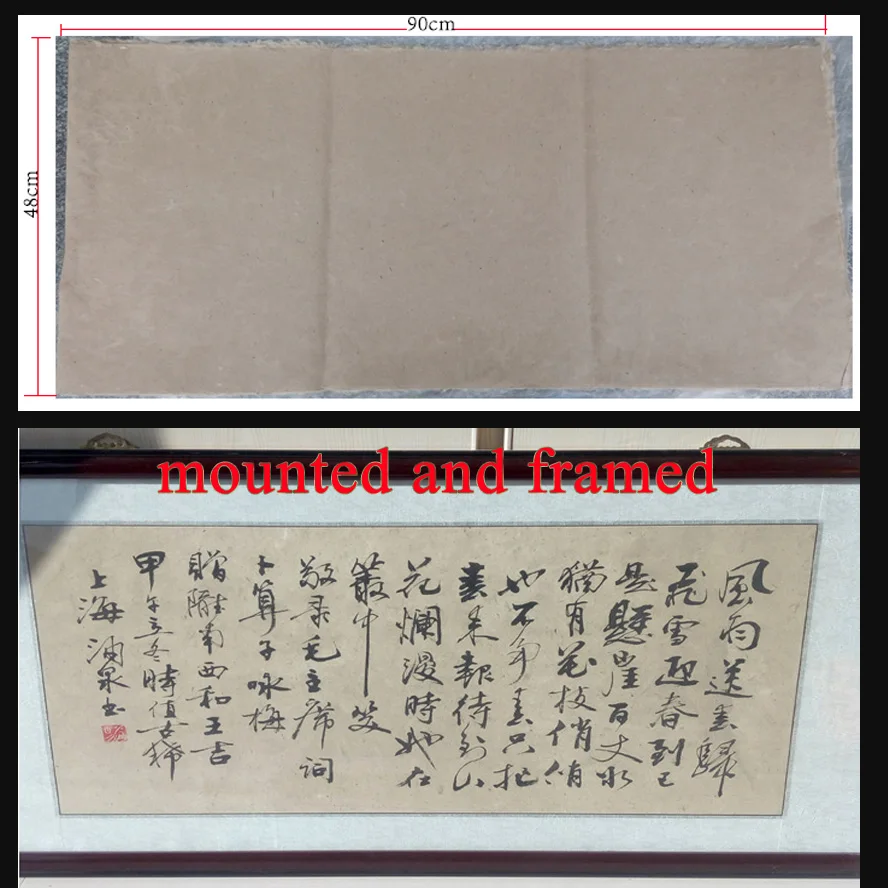 90cm
48cm
mounted and framed
風雨送春歸
飛雪迎春到已
是懸崖百丈冰
猶有花枝俏俏
也不争春只把
春来報待到山
花爛漫時她在
叢中笑
敬录毛主席词
卜算子咏梅
贈隴南西和王吉
甲午立冬時值
上海泉书